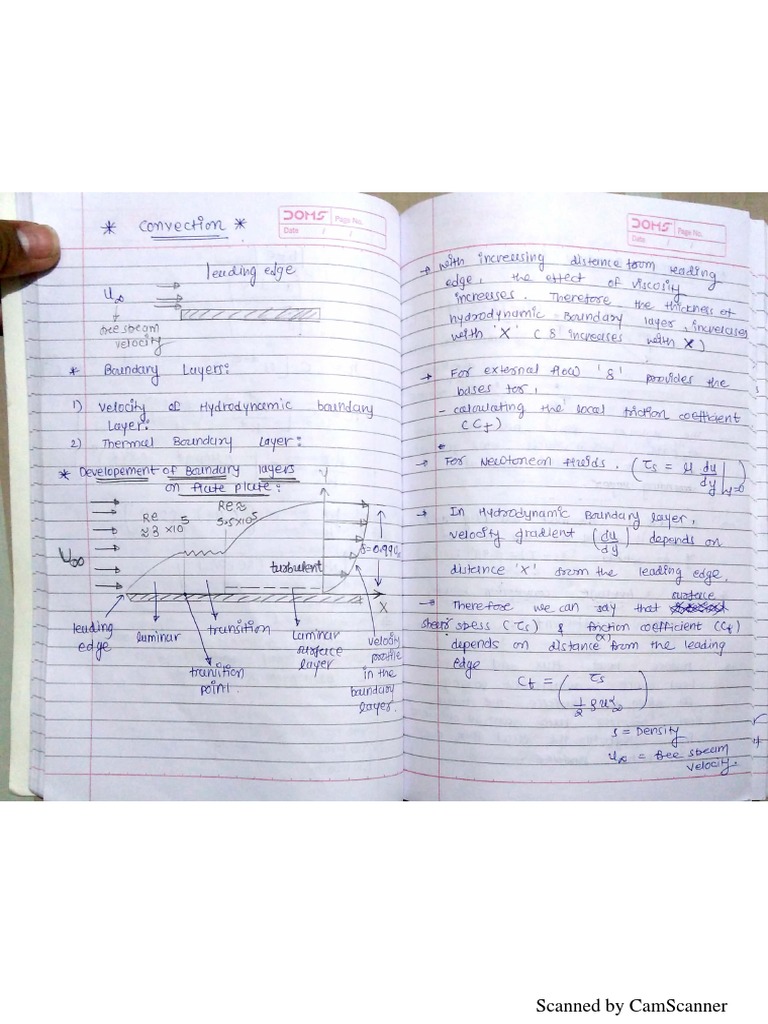 * Convection *
DOMS Page No.
Date / /
leading edge
U∞
free stream
velocity
* Boundary Layers:
1) Velocity of Hydrodynamic boundary
Layer:
2) Thermal Boundary Layer:
* Developement of Boundary layers
on flate plate:
Y
Re
≈ 3 ×10^5
Re ≈
5.5×10^5
U∞
turbulent
δ=0.99U∞
X
leading
edge
laminar
transition
tranition
point.
Laminar
surface
layer
velocity
profile
in the
boundary
layer.
DOMS Page No.
Date / /
→ with increasing distance from leading
edge, the effect of viscosity
increases. Therefore the thickness of
hydrodynamic Boundary layer, increases
with 'X' (δ increases with X)
→ For external flow 'δ' provides the
bases for,
- calculating the local friction coefficient
(Cf)
→ For Newtoneon fluids. (τs = μ du/dy |y=0)
→ In Hydrodynamic Boundary layer,
velocity gradient (du/dy) depends on
distance 'X' from the leading edge.
→ Therefore we can say that surface
shear stess (τs) & friction coefficient (Cf)
depends on distance (x) from the leading
edge
Cf = (τs / ½ ρu²∞)
ρ = Density
u∞ = free stream
velocity.
Scanned by CamScanner